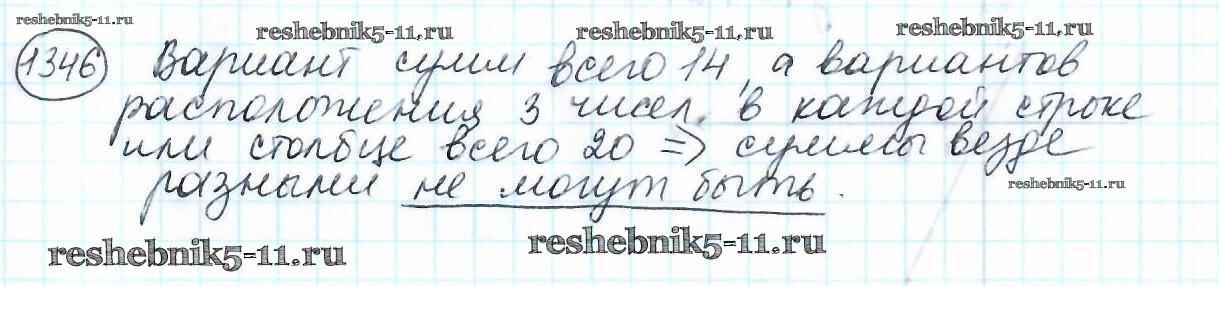 reshebnik5-11.ru
reshebnik5-11.ru reshebnik5-11.ru reshebnik5-11.ru
1346 Вариант сумм всего 14, а вариантов
расположения 3 чисел в каждой строке
или столбце всего 20 => суммы везде
разными не могут быть.
reshebnik5-11.ru
reshebnik5-11.ru reshebnik5-11.ru